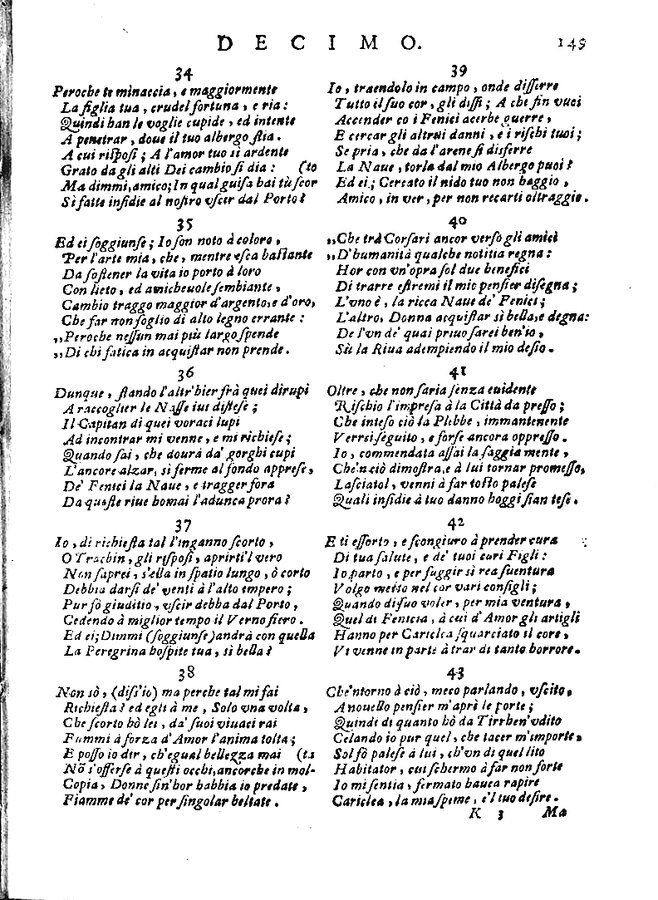 DECIMO. 149
34
Peroche te minaccia, e maggiormente
La figlia tua, crudel fortuna, e ria:
Quindi han le voglie cupide, ed intente
A penetrar, doue il tuo albergo stia.
A cui risposi; A l'amor tuo sì ardente
Grato da gli alti Dei cambio si dia: (to
Ma dimmi, amico; In qual guisa hai tù scor
Sì fatte insidie al nostro vscir dal Porto?
35
Ed ei soggiunse; Io son noto à coloro,
Per l'arte mia, che, mentre esca bastante
Da sostener la vita io porto à loro
Con lieto, ed amicheuole sembiante,
Cambio traggo maggior d'argento, e d'oro,
Che far non soglio di alto legno errante:
„Peroche nessun mai più largo spende
„Di chi fatica in acquistar non prende.
36
Dunque, stando l'altr'hier frà quei dirupi
A raccoglier le Nasse iui distese;
Il Capitan di quei voraci lupi
Ad incontrar mi venne, e mi richiese;
Quando sai, che dourà da' gorghi cupi
L'ancore alzar, sì ferme al fondo apprese,
De' Fenici la Naue, e tragger fora
Da queste riue homai l'adunca prora?
37
Io, di richiesta tal l'inganno scorto,
O Trachin, gli risposi, aprirti'l vero
Non saprei, s'ella in spatio lungo, ò corto
Debbia darsi de' venti à l'alto impero;
Pur fò giuditio, vscir debba dal Porto,
Cedendo à miglior tempo il Verno fiero.
Ed ei; Dimmi (soggiunse) andrà con quella
La Peregrina hospite tua, sì bella?
38
Non sò, (diss'io) ma perche tal mi fai
Richiesta? ed egli à me, Solo vna volta,
Che scorto hò lei, da' suoi viuaci rai
Fummi à forza d'Amor l'anima tolta;
E posso io dir, ch'egual bellezza mai (ta
Nõ s'offerse à questi occhi, ancorche in mol-
Copia, Donne fin'hor habbia io predate,
Fiamme de' cor per singolar beltate.
39
Io, traendolo in campo, onde disserre
Tutto il suo cor, gli dissi; A che fin vuoi
Accender co i Fenici acerbe guerre,
E cercar gli altrui danni, e i rischi tuoi;
Se pria, che da l'arene si disserre
La Naue, torla dal mio Albergo puoi?
Ed ei; Cercato il nido tuo non haggio,
Amico, in ver, per non recarti oltraggio.
40
„Che trà Corsari ancor verso gli amici
„D'humanità qualche notitia regna:
Hor con vn'opra sol due benefici
Di trarre estremi il mio pensier disegna;
L'vno è, la ricca Naue de' Fenici;
L'altro, Donna acquistar sì bella, e degna:
De l'vn de' quai priuo sarei ben'io,
Sù la Riua adempiendo il mio desio.
41
Oltre, che non saria senza euidente
Rischio l'impresa à la Città da presso;
Che inteso ciò la Plebbe, immantenente
Verrei seguito, e forse ancora oppresso.
Io, commendata assai la saggia mente,
Che'n ciò dimostra, e à lui tornar promesso,
Lasciatol, venni à far tosto palese
Quali insidie à tuo danno hoggi sian tese.
42
E ti essorto, e scongiuro à prender cura
Di tua salute, e de' tuoi cari Figli:
Io parto, e per fuggir sì rea suentura
Volgo mesto nel cor vari consigli;
Quando di suo voler, per mia ventura,
Quel di Fenicia, à cui d'Amor gli artigli
Hanno per Cariclea squarciato il core,
Vi venne in parte à trar di tanto horrore.
43
Che'ntorno à ciò, meco parlando, vscito,
A nouello pensier m'aprì le porte;
Quindi di quanto hò da Tirrhen'vdito
Celando io pur quel, che tacer m'importe,
Sol fò palese à lui, ch'vn di quel lito
Habitator, cui schermo à far non forte
Io mi sentia, fermato hauea rapire
Cariclea, la mia speme, e'l tuo desire.
K 3 Ma